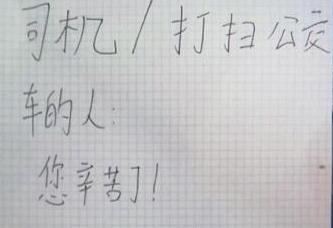 司机/打扫公交
车的人:
您辛苦了!